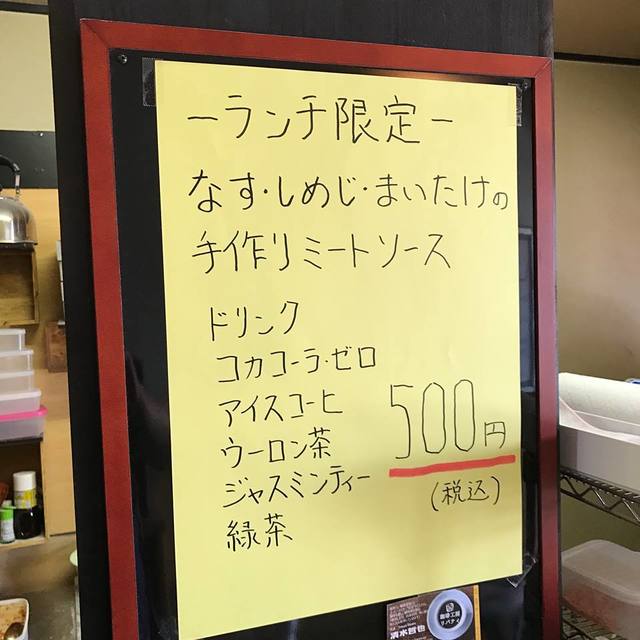 ーランチ限定ー
なす・しめじ・まいたけの
手作りミートソース
ドリンク
コカコーラ・ゼロ
アイスコーヒ
ウーロン茶
ジャスミンティー
緑茶
500円
(税込)
清水哲也